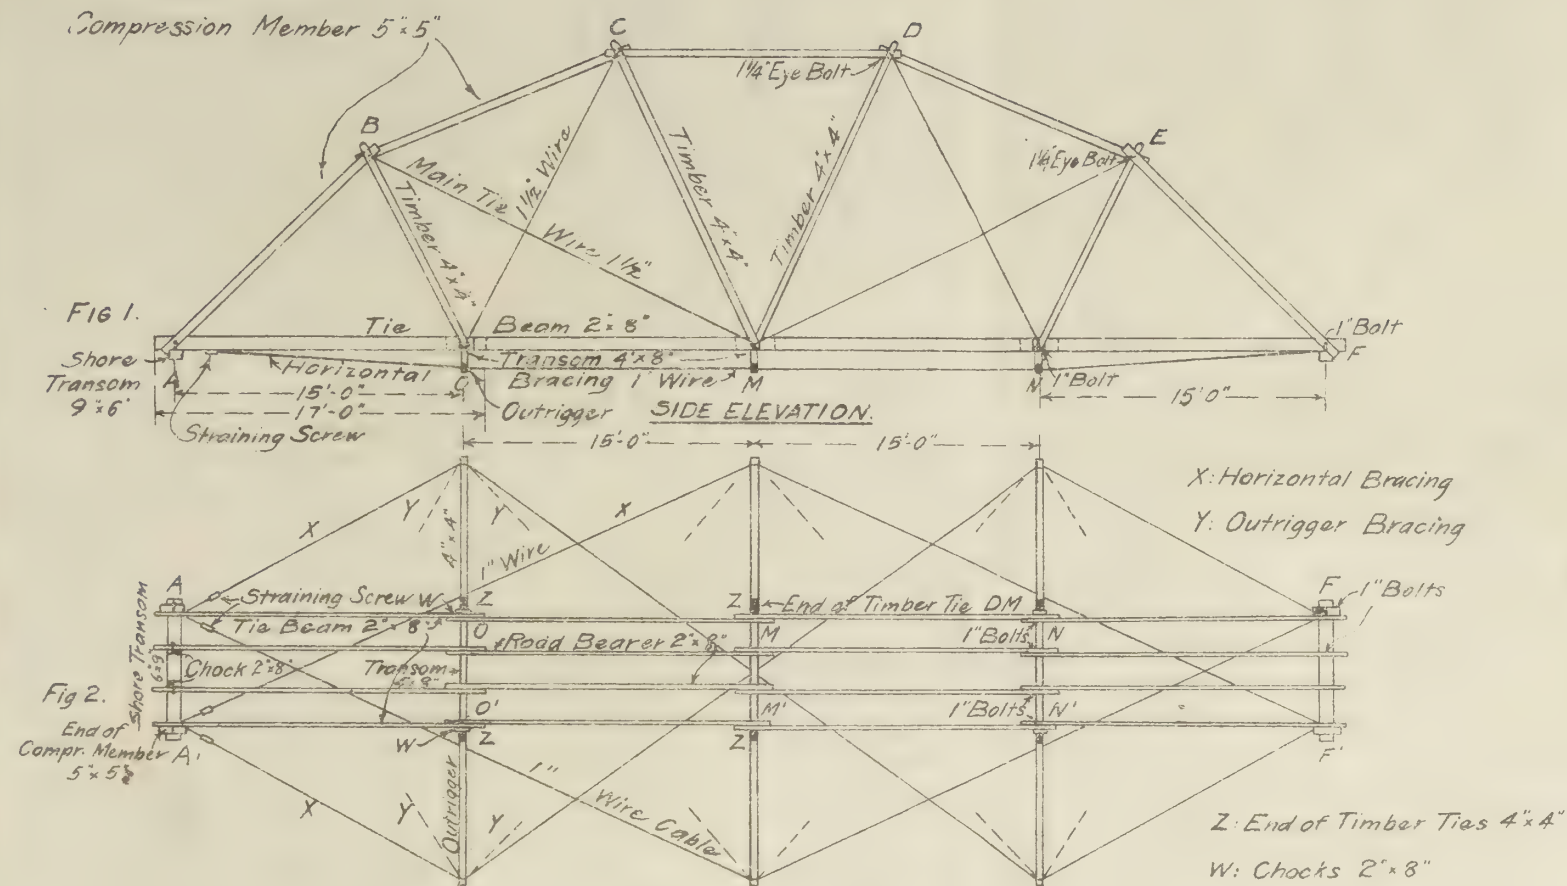 Compression Member 5"×5"
C
D
1¼" Eye Bolt
B
E
1¼" Eye Bolt
Main Tie
Wire 1½"
1½" Wire
Timber 4"×4"
Timber 4"×4"
Timber 4"×4"
FIG 1.
Tie Beam 2"×8"
1" Bolt
F
Shore
Transom
9"×6"
A
Transom 4"×8"
Horizontal Bracing 1" Wire
O
M
N
1" Bolt
15'-0"
15'-0"
17'-0"
Outrigger
SIDE ELEVATION.
Straining Screw
15'-0"
15'-0"
X: Horizontal Bracing
Y: Outrigger Bracing
X
Y
Y
4"×4"
1" Wire
X
A
Shore Transom
6"×9"
Straining Screw
W
Z
Z
End of Timber Tie DM
F
1" Bolts
Tie Beam 2"×8"
O
Road Bearer 2"×8"
M
1" Bolts
N
Chock 2"×8"
Transom
Fig 2.
O'
M'
1" Bolts
N'
End of
Compr. Member
5"×5"
A'
W
Z
Z
F'
X
Y
Outrigger
Y
1" Wire Cable
Z: End of Timber Ties 4"×4"
W: Chocks 2"×8"